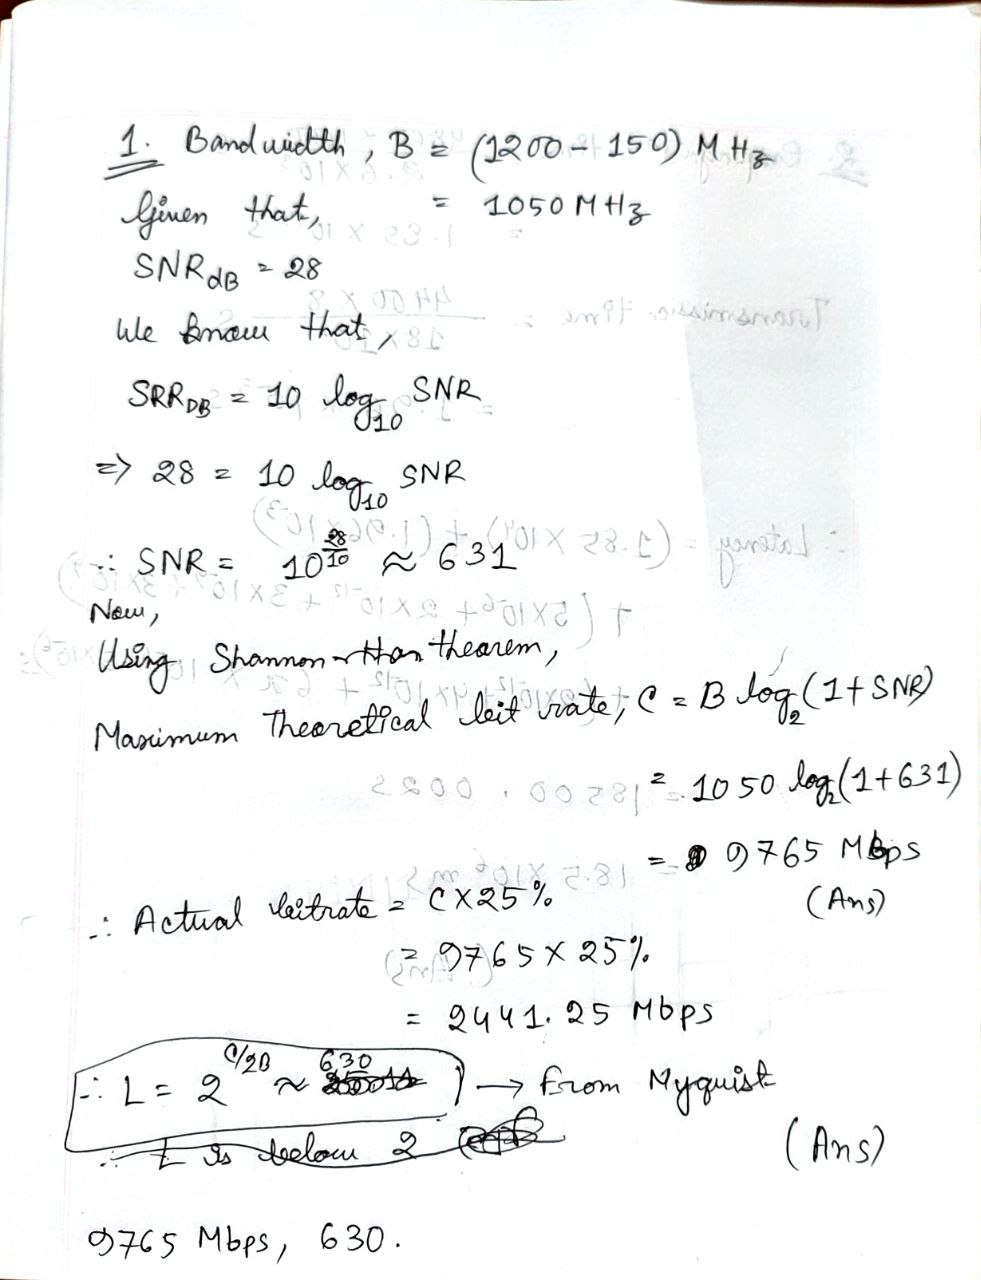 1. Bandwidth, B = (1200 - 150) MHz
Given that, = 1050 MHz
SNR dB = 28
We know that,
SRR DB = 10 log10 SNR
=> 28 = 10 log10 SNR
∴ SNR = 10^(28/10) ≈ 631
Now,
Using Shannon theorem,
Maximum Theoretical bit rate, C = B log2 (1 + SNR)
= 1050 log2 (1 + 631)
= 9765 Mbps
(Ans)
∴ Actual bitrate = C X 25%
= 9765 X 25%
= 2441.25 Mbps
∴ L = 2^(C/2B) ≈ 630 → From Nyquist
∴ L is below 2 (Ans)
9765 Mbps, 630.